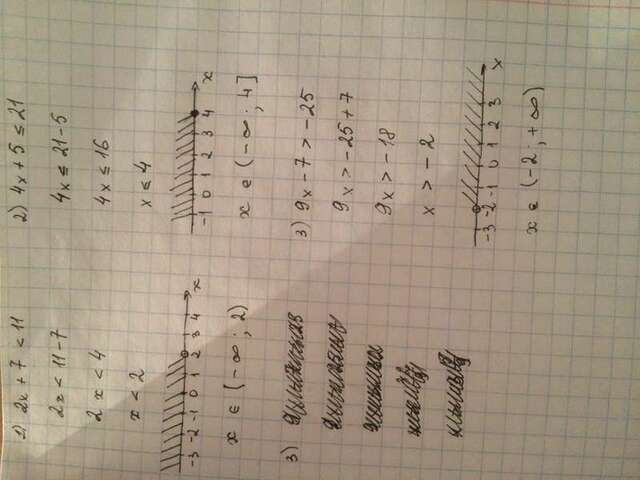 1) 2x + 7 < 11
2x < 11 - 7
2x < 4
x < 2
-3 -2 -1 0 1 2 3 4 x
x ∈ (-∞ ; 2)
2) 4x + 5 ≤ 21
4x ≤ 21 - 5
4x ≤ 16
x ≤ 4
-1 0 1 2 3 4 x
x ∈ (-∞ ; 4]
3)
3) 9x - 7 > -25
9x > -25 + 7
9x > -18
x > -2
-3 -2 -1 0 1 2 3 x
x ∈ (-2 ; +∞)